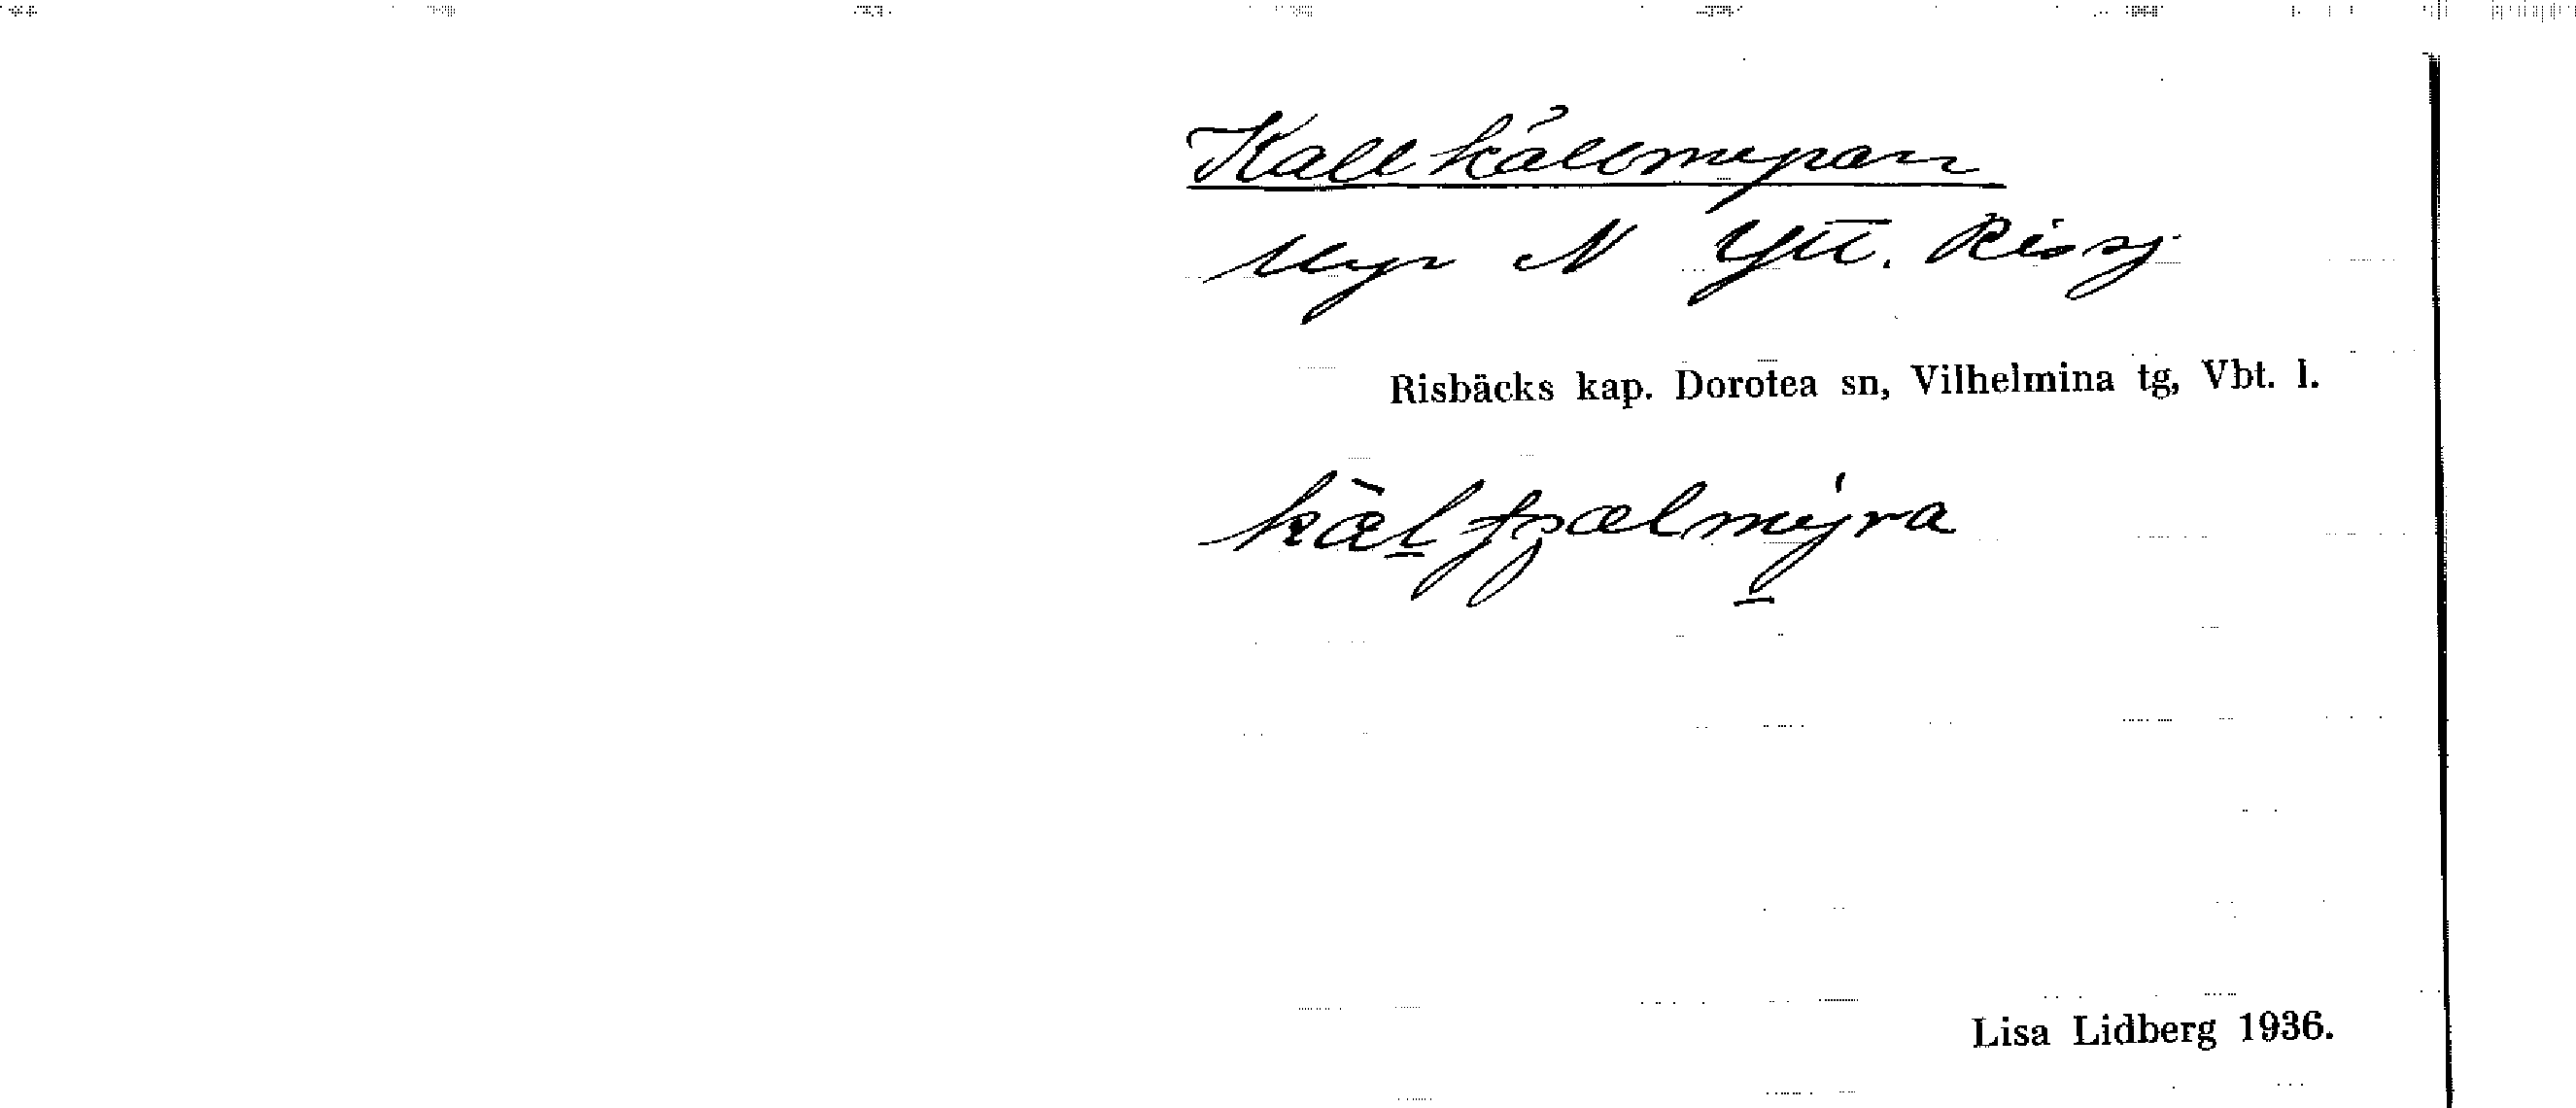 Kallkällmyran
Myr N Ytt. Rissj
Risbäcks kap. Dorotea sn, Vilhelmina tg, Vbt. l.
Lisa Lidberg 1936.